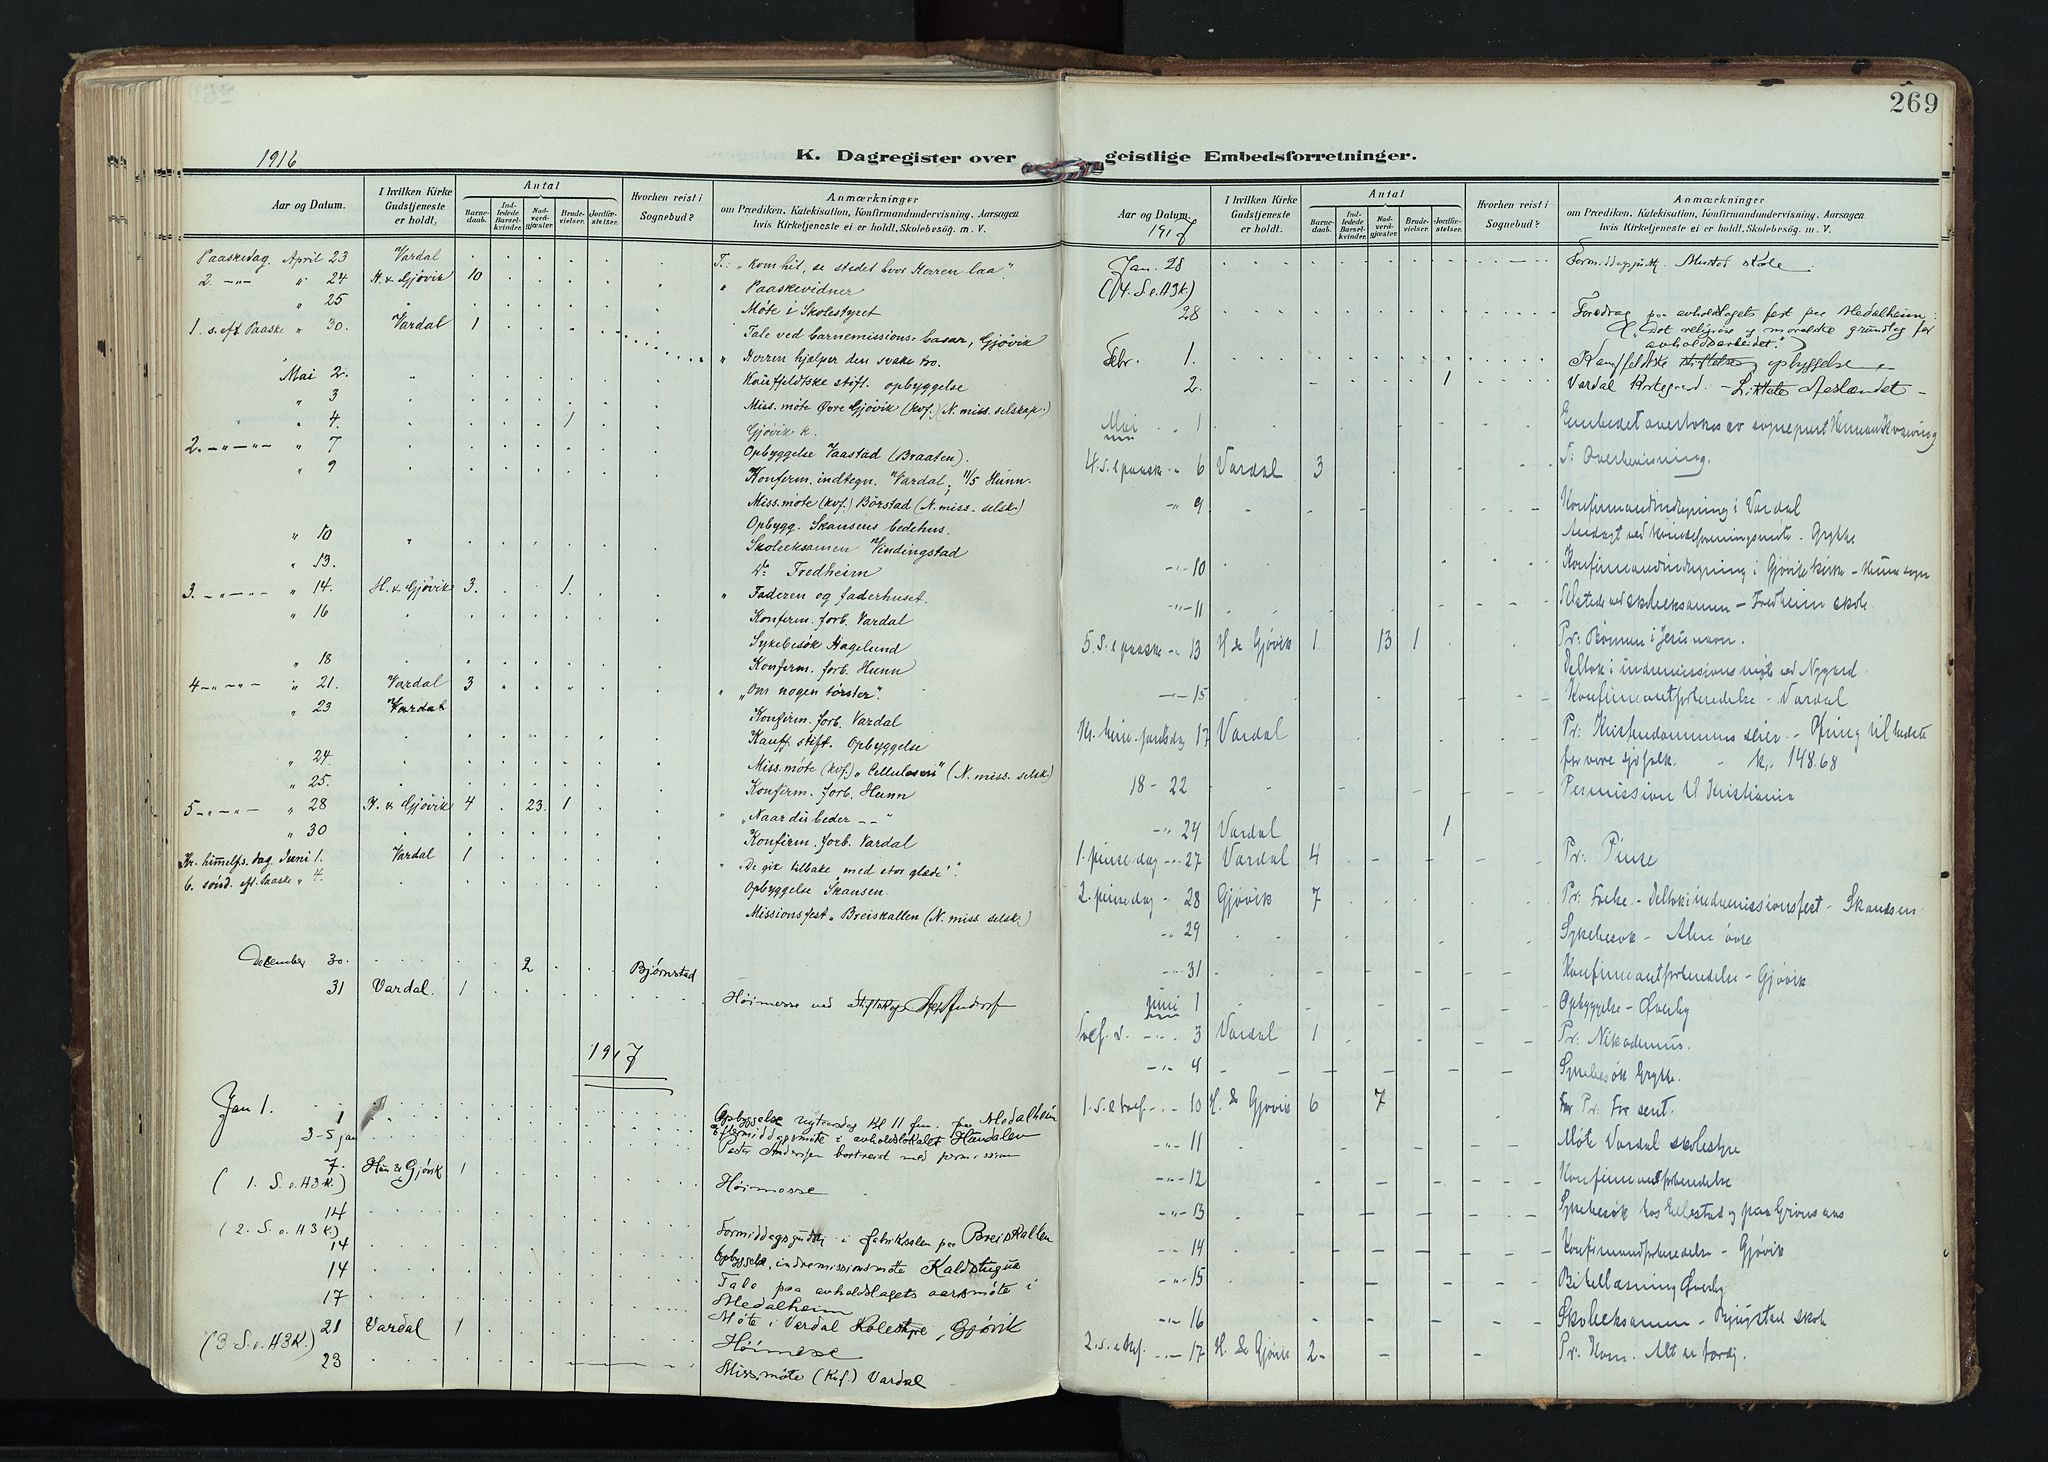 269
K. Dagregister over geistlige Embedsforretninger.
1916
Aar og Datum.
I hvilken Kirke Gudstjeneste er holdt.
Antal
Barnedaab.
Indledede Barselkvinder.
Nadverdgjæster.
Brudevielser.
Jordfæstelser.
Hvorhen reist i Sognebud?
Anmærkninger
om Prædiken, Katekisation, Konfirmandundervisning, Aarsagen
hvis Kirketjeneste ei er holdt, Skolebesög, m. V.
Paaskedag April 23 Vardal T.: "Kom hit, se stedet hvor Herren laa"
2. " 24 H. & Gjøvik 10 " Paaskevidner
" 25 Møte i Skolestyret
1. s. eft Paaske " 30. Vardal 1 Tale ved barnemissions-basar, Gjøvik
" Herren hjælper den svake tro.
Mai 2. Kauffeldtske stift. opbyggelse
" 3 Miss. møte Øvre Gjøvik (kvf.) (N. miss. selskap.)
" 4. 1 Gjøvik k.
2. " 7 Opbyggelse Vaastad (Braaten).
" 9 Konfirm. indtegn. Vardal, 11/5 Hunn.
Miss. møte (kvf.) Børstad (N. miss. selsk.)
" 10 Opbygg. Skansens bedehus.
Skoleeksamen Vindingstad
" 13. Do Fredheim
3. " 14. H. & Gjøvik 3. 1. " Faderen og faderhuset.
" 16 Konfirm. forb. Vardal
Sykebesøk Hagelund
" 18 Konfirm. forb. Hunn
4 " 21. Vardal 3 " "Om nogen tørster".
" 23 Vardal Konfirm. forb. Vardal
Kauff. stift. Opbyggelse
" 24. Miss. møte (kvf.) "Cellulosen" (N. miss. selsk.)
" 25. Konfirm. forb. Hunn
5 " 28 H. & Gjøvik 4 23. 1 " "Naar dis beder --"
" 30 Konfirm. forb. Vardal
Kr. himmelfs. dag. Juni 1. Vardal 1 " "De gik tilbake med stor glæde".
6. sønd. eft. Paaske " 4. Opbyggelse Skansen.
Missionsfest Breiskallen (N. miss. selsk.)
December 30. 2 Bjørnstad
31 Vardal. 1 Høimesse ved
1917
Jan 1. 1 Opbyggelse nytaarsdag Kl 11 fm. paa Medalheim
Eftermiddagsmøte i avholdslokalet Hundalen
3-5 jan Pastor Anderssen bortreist med perm.
7. Hun & Gjøvik 1
(1. S. e. H3K.) Høimesse
14
(2. S. e. H3K.) Formiddagsgudstj. i fabriksalen paa Breiskallen
14 Opbyggelse, indremissionsmøte Kaldstuguk
14 Tale paa avholdslagets aarsmøte i Medalheim
17 Møte i Vardal skolestyre, Gjøvik
21 Vardal 1
(3 S. e. H3K.) Høimesse
23 Miss.møte (Kvf.) Vardal
Aar og Datum
1917
I hvilken Kirke Gudstjeneste er holdt.
Antal
Barnedaab.
Indledede Barselkvinder.
Nadverdgjæster.
Brudevielser.
Jordfæstelser.
Hvorhen reist i Sognebud?
Anmærkninger
om Prædiken, Katekisation, Konfirmandundervisning, Aarsagen
hvis Kirketjeneste ei er holdt, Skolebesög, m. V.
Jan. 28 Formiddagsgudstj. Mustad skole.
(4. S. e. H3K.)
28 Foredrag paa avholdslagets fest paa Medalheim:
("Det religiøse og moralske grundlag for
avholdsarbeidet.")
Febr. 1. Kauffeldtske stiftelse opbyggelse
2. 1 Vardal Kirkegaard.
Mai 1 Embedet overtokes av sogneprest
4. S. e paaske " 6 Vardal 3 T: Overbevisning.
" 9 Konfirmandindtegning i Vardal
Andagt ved kvindeforeningsmøte. Grythe
" 10 Konfirmandindtegning i Gjøvik kirke - Hunn sogn
" 11 Tilstede ved skoleeksamen - Fredheim skole
5. S. e paaske " 13 H & Gjøvik 1 13 1 Pr: Bønnen i Jesu navn.
Deltok i indremissionsmøte ved Nygard.
" 15 Konfirmantforberedelse - Vardal
Kr. him. fardsdag 17 Vardal Pr: Kristendommens seier. - Ofring til bedste
for vore sjøfolk. kr. 148.68
18 - 22 Permission til Kristiania
" 24 Vardal 1
1. pinsedag " 27 Vardal 4 Pr: Pinse
2. pinsedag " 28 Gjøvik 7 Pr: - Deltok i indremissionsfest - Skansen
" 29 Sykebesøk - Alm øvre
" 31 Konfirmantforberedelse - Gjøvik
Juni 1 Opbyggelse - Øverby
Tref. s. " 3 Vardal 1 Pr: Nikodemus.
" 4 Sykebesøk Grythe.
1. s. e tref. " 10 H. & Gjøvik 6 7 Pr: For sent.
" 11 Møte Vardal skolestyre
" 12 Konfirmantforberedelse
" 13 Sykebesøk
" 14 Konfirmandforberedelse - Gjøvik
" 15 Bibellæsning Øverby
" 16 Skoleeksamen - skole
2. s. e tref. " 17 H. & Gjøvik 2 Pr: Kom. Alt er færdig.